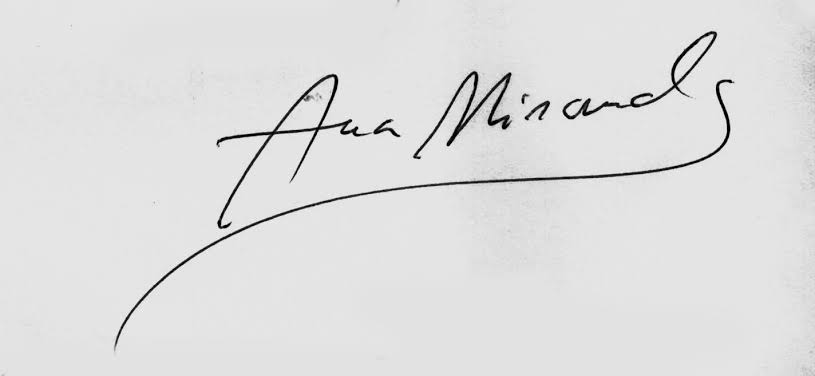 Ana Miranda